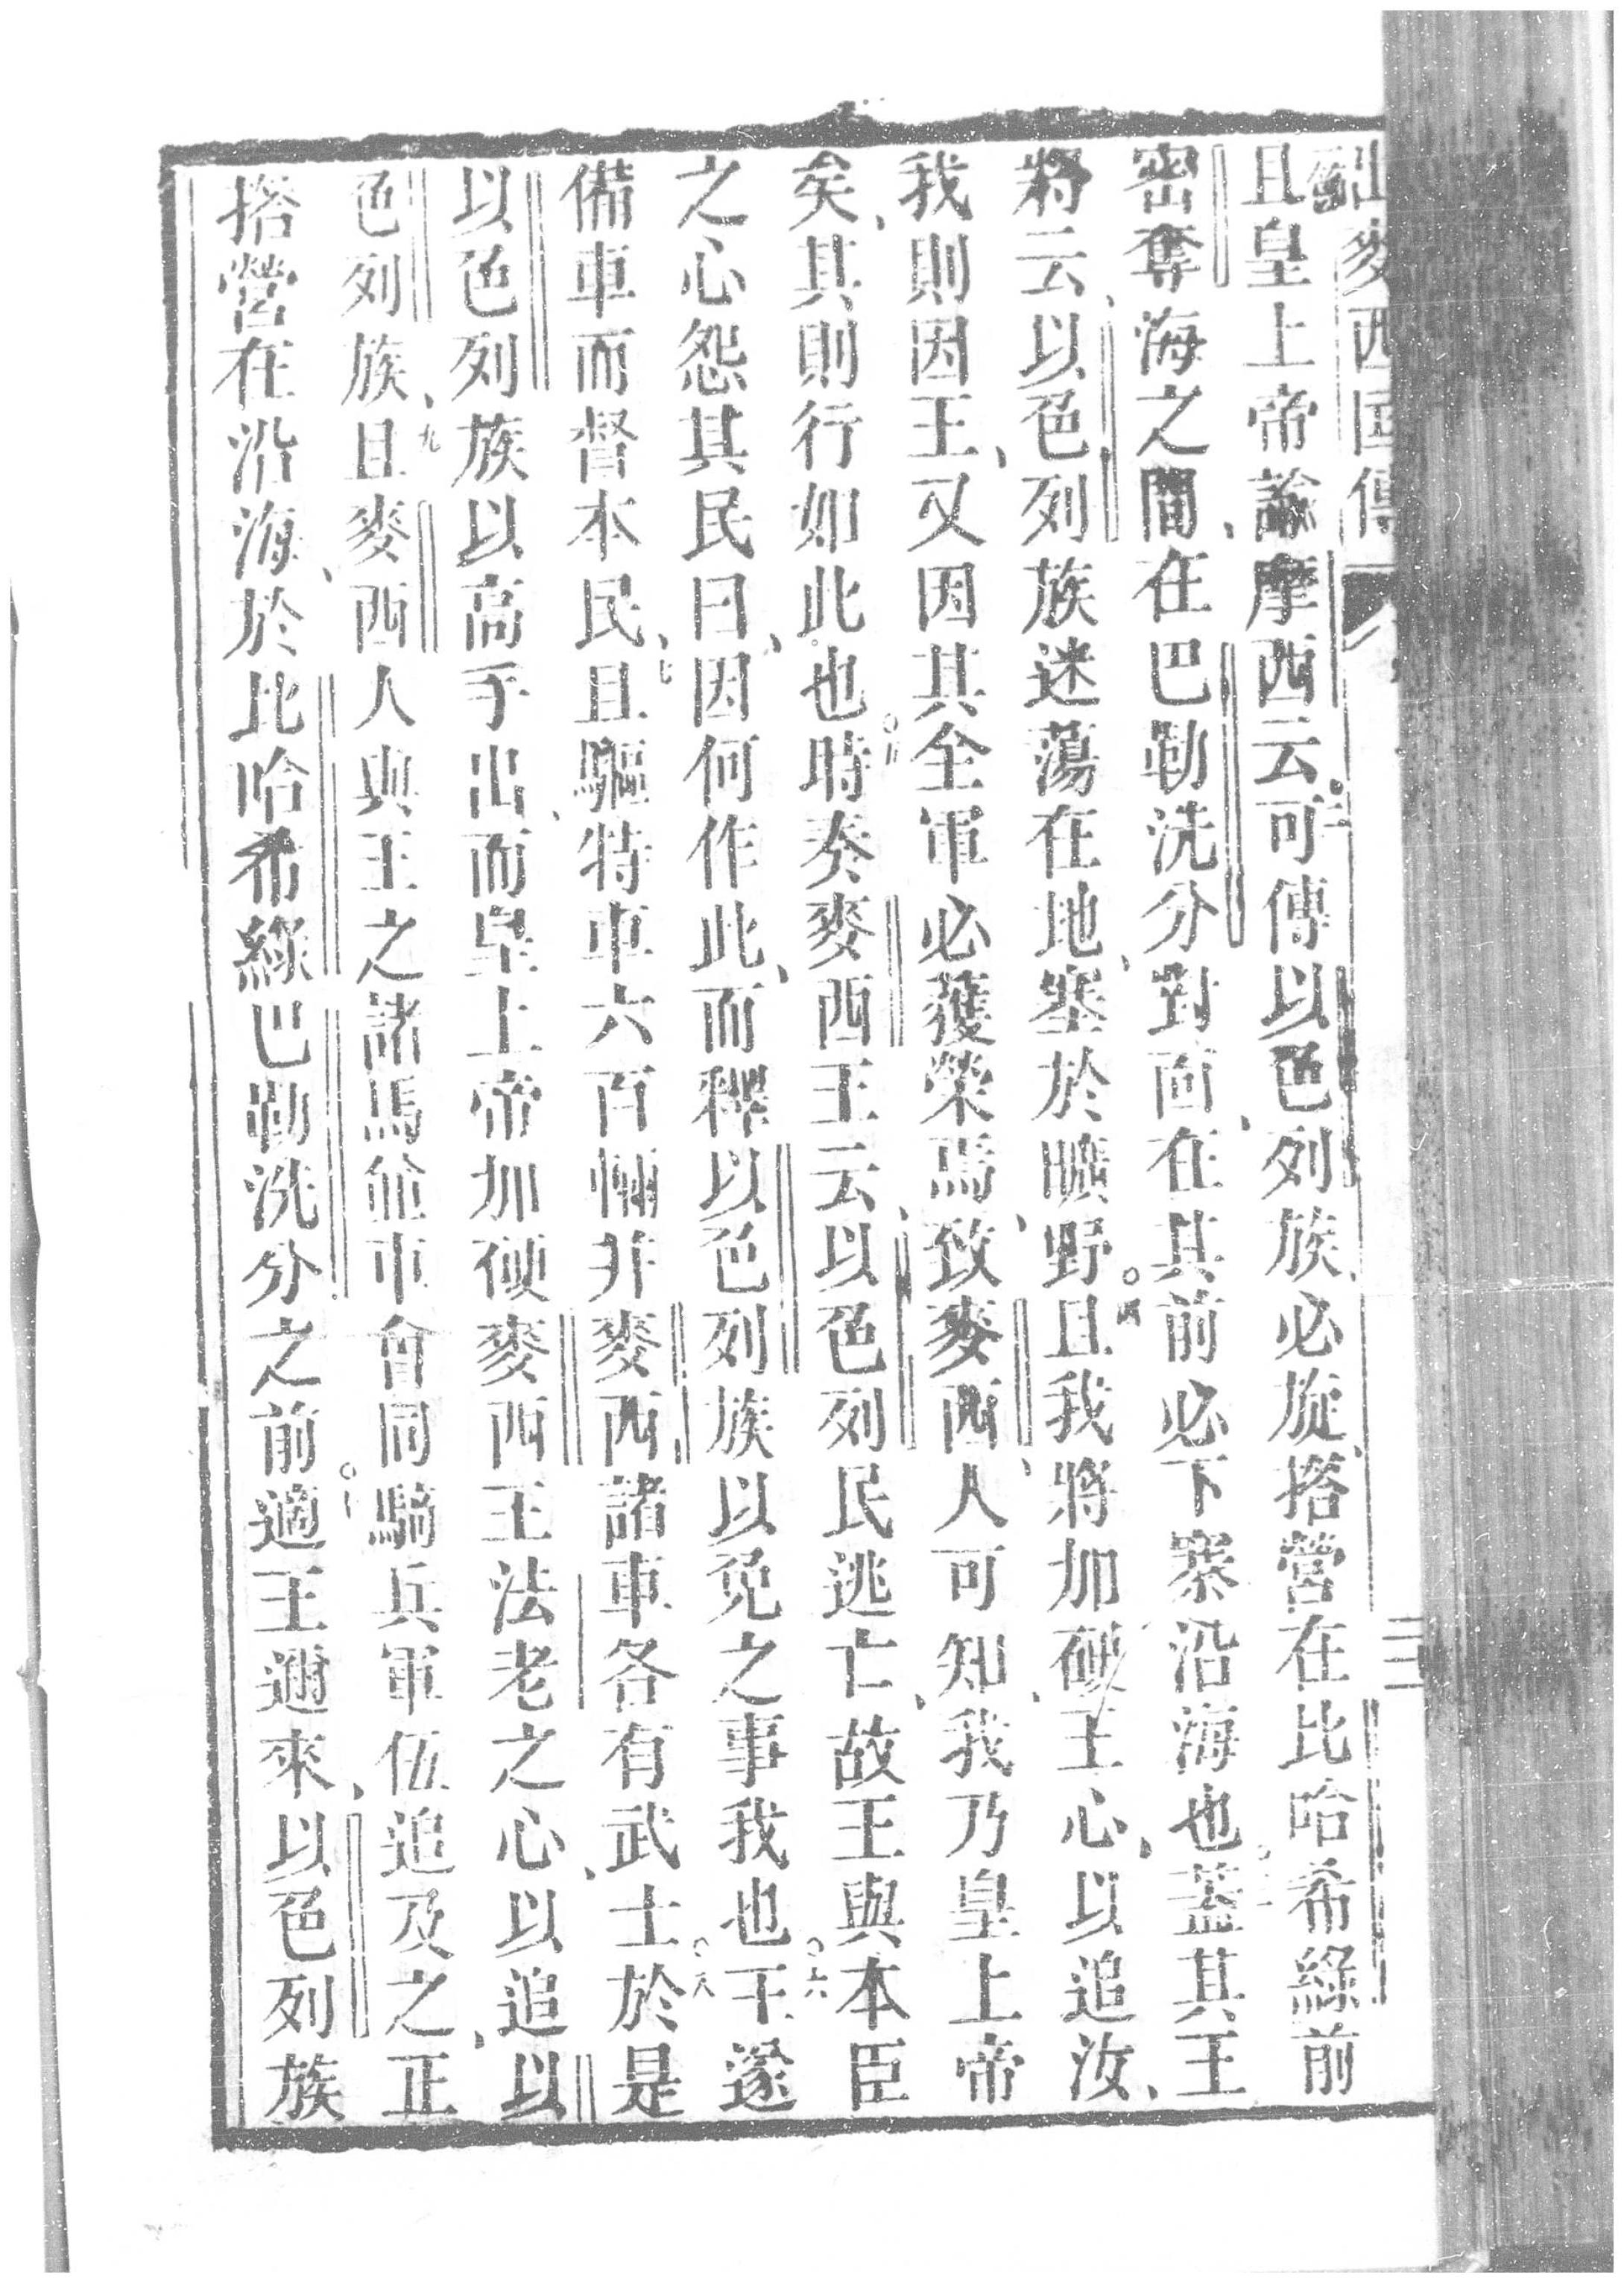 出麥西国傳
三
且皇上帝諭摩西云、二可傳以色列族、必旋搭營在比哈希綠前
密奪海之間、在巴勒洗分對面、在其前必下寨沿海也。三蓋其王
將云、以色列族迷蕩在地、塞於曠野。四且我將加硬王心、以追汝、
我則因王、又因其全軍必獲榮焉、致麥西人可知、我乃皇上帝
矣、其則行如此也。五時奏麥西王云、以色列民逃亡、故王與本臣
之心怨其民曰、因何作此、而釋以色列族以免之事我也。六王遂
備車而督本民、七且驅特車六百輛、并麥西諸車、各有武士於是。八
以色列族以高手出、而皇上帝加硬麥西王法老之心、以追以
色列族、九且麥西人與王之諸馬並車、會同騎兵軍伍追及之、正
搭營在沿海、於比哈希綠巴勒洗分之前。十適王邇來、以色列族